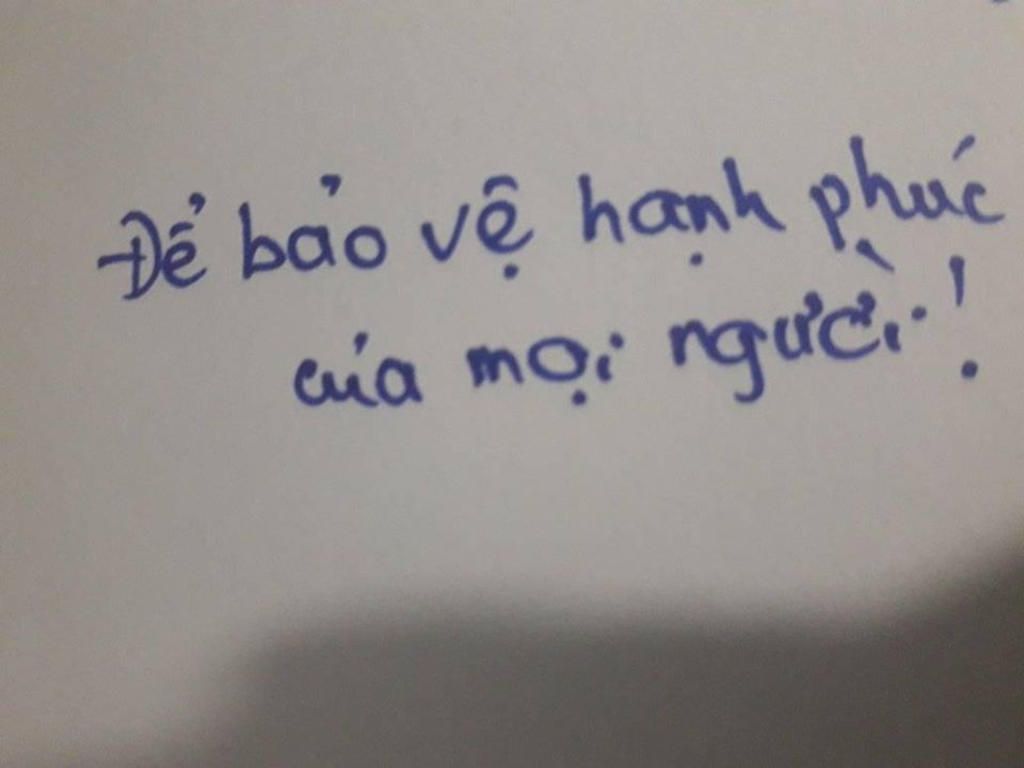 Để bảo vệ hạnh phúc
của mọi người!